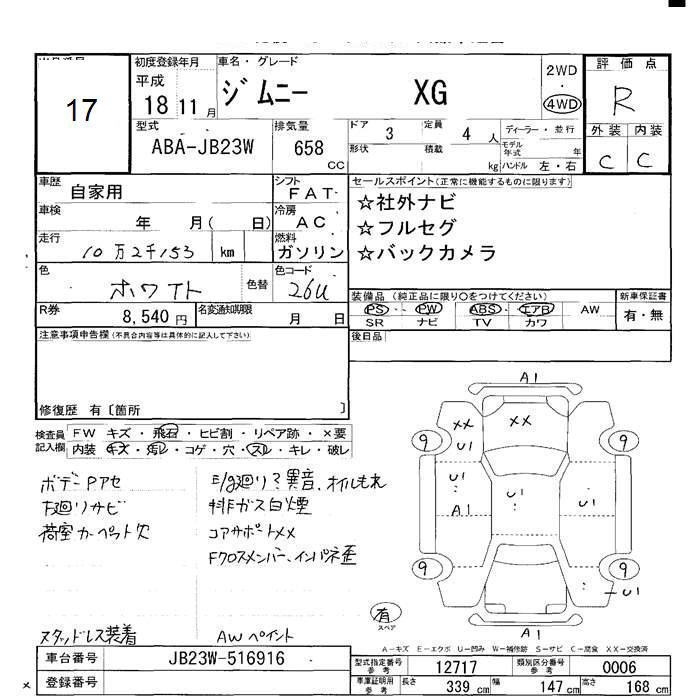 17
初度登録年月
平成
18 11 月
車名・グレード
ジムニー XG
2WD
・
4WD
評価点
R
外装 内装
C C
型式
ABA-JB23W
排気量
658
CC
ドア 3 定員 4 人
形状 積載 kg
ディーラー・並行
モデル年式 年
ハンドル 左・右
車歴 自家用
シフト FAT
車検 年 月( 日)
冷房 AC
走行 10万2千153 km
燃料 ガソリン
色 ホワイト 色替
色コード 26U
R券 8,540 円
名変通知期限 月 日
セールスポイント(正常に機能するものに限ります)
☆社外ナビ
☆フルセグ
☆バックカメラ
装備品(純正品に限り○をつけてください)
PS・ PW ABS・エアB AW
SR ナビ TV カワ
新車保証書
有・無
後日品
注意事項申告欄(不具合内容等は具体的に記入して下さい)
修復歴 有〔箇所 〕
検査員記入欄
FW キズ・飛石・ヒビ割・リペア跡・×要
内装 キズ・汚レ・コゲ・穴・スレ・キレ・破レ
ボデーPアセ
下廻リサビ
荷室カーペット欠
スタッドレス装着
E/g廻リ?異音、オイルもれ
排ガス白煙
コアサポートXX
Fクロスメンバー、インパネ歪
AWペイント
A1
XX
U1
XX
9
9
U1
A1
U1
U1
9
9
U1
A1
有
スペア
A-キズ E-エクボ U-凹み W-補修跡 S-サビ C-腐食 XX-交換済
車台番号 JB23W-516916
登録番号
型式指定番号 参考 12717
類別区分番号 参考 0006
車庫証明用 参考 長さ 339 cm 幅 147 cm 高さ 168 cm